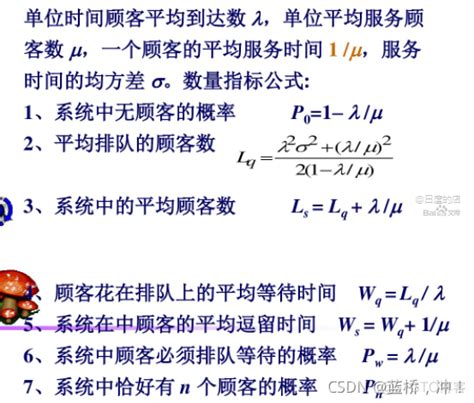 单位时间顾客平均到达数 λ，单位平均服务顾
客数 μ，一个顾客的平均服务时间 1/μ，服务
时间的均方差 σ。数量指标公式:
1、系统中无顾客的概率 P₀=1− λ/μ
2、平均排队的顾客数 L_q = (λ²σ² + (λ/μ)²) / (2(1−λ/μ))
3、系统中的平均顾客数 L_s = L_q + λ/μ
@日度的店
Baidu文库
、顾客花在排队上的平均等待时间 W_q = L_q / λ
5、系统在中顾客的平均逗留时间 W_s = W_q + 1/μ
6、系统中顾客必须排队等待的概率 P_w = λ/μ
7、系统中恰好有 n 个顾客的概率 P_n
CSDN @蓝桥，冲